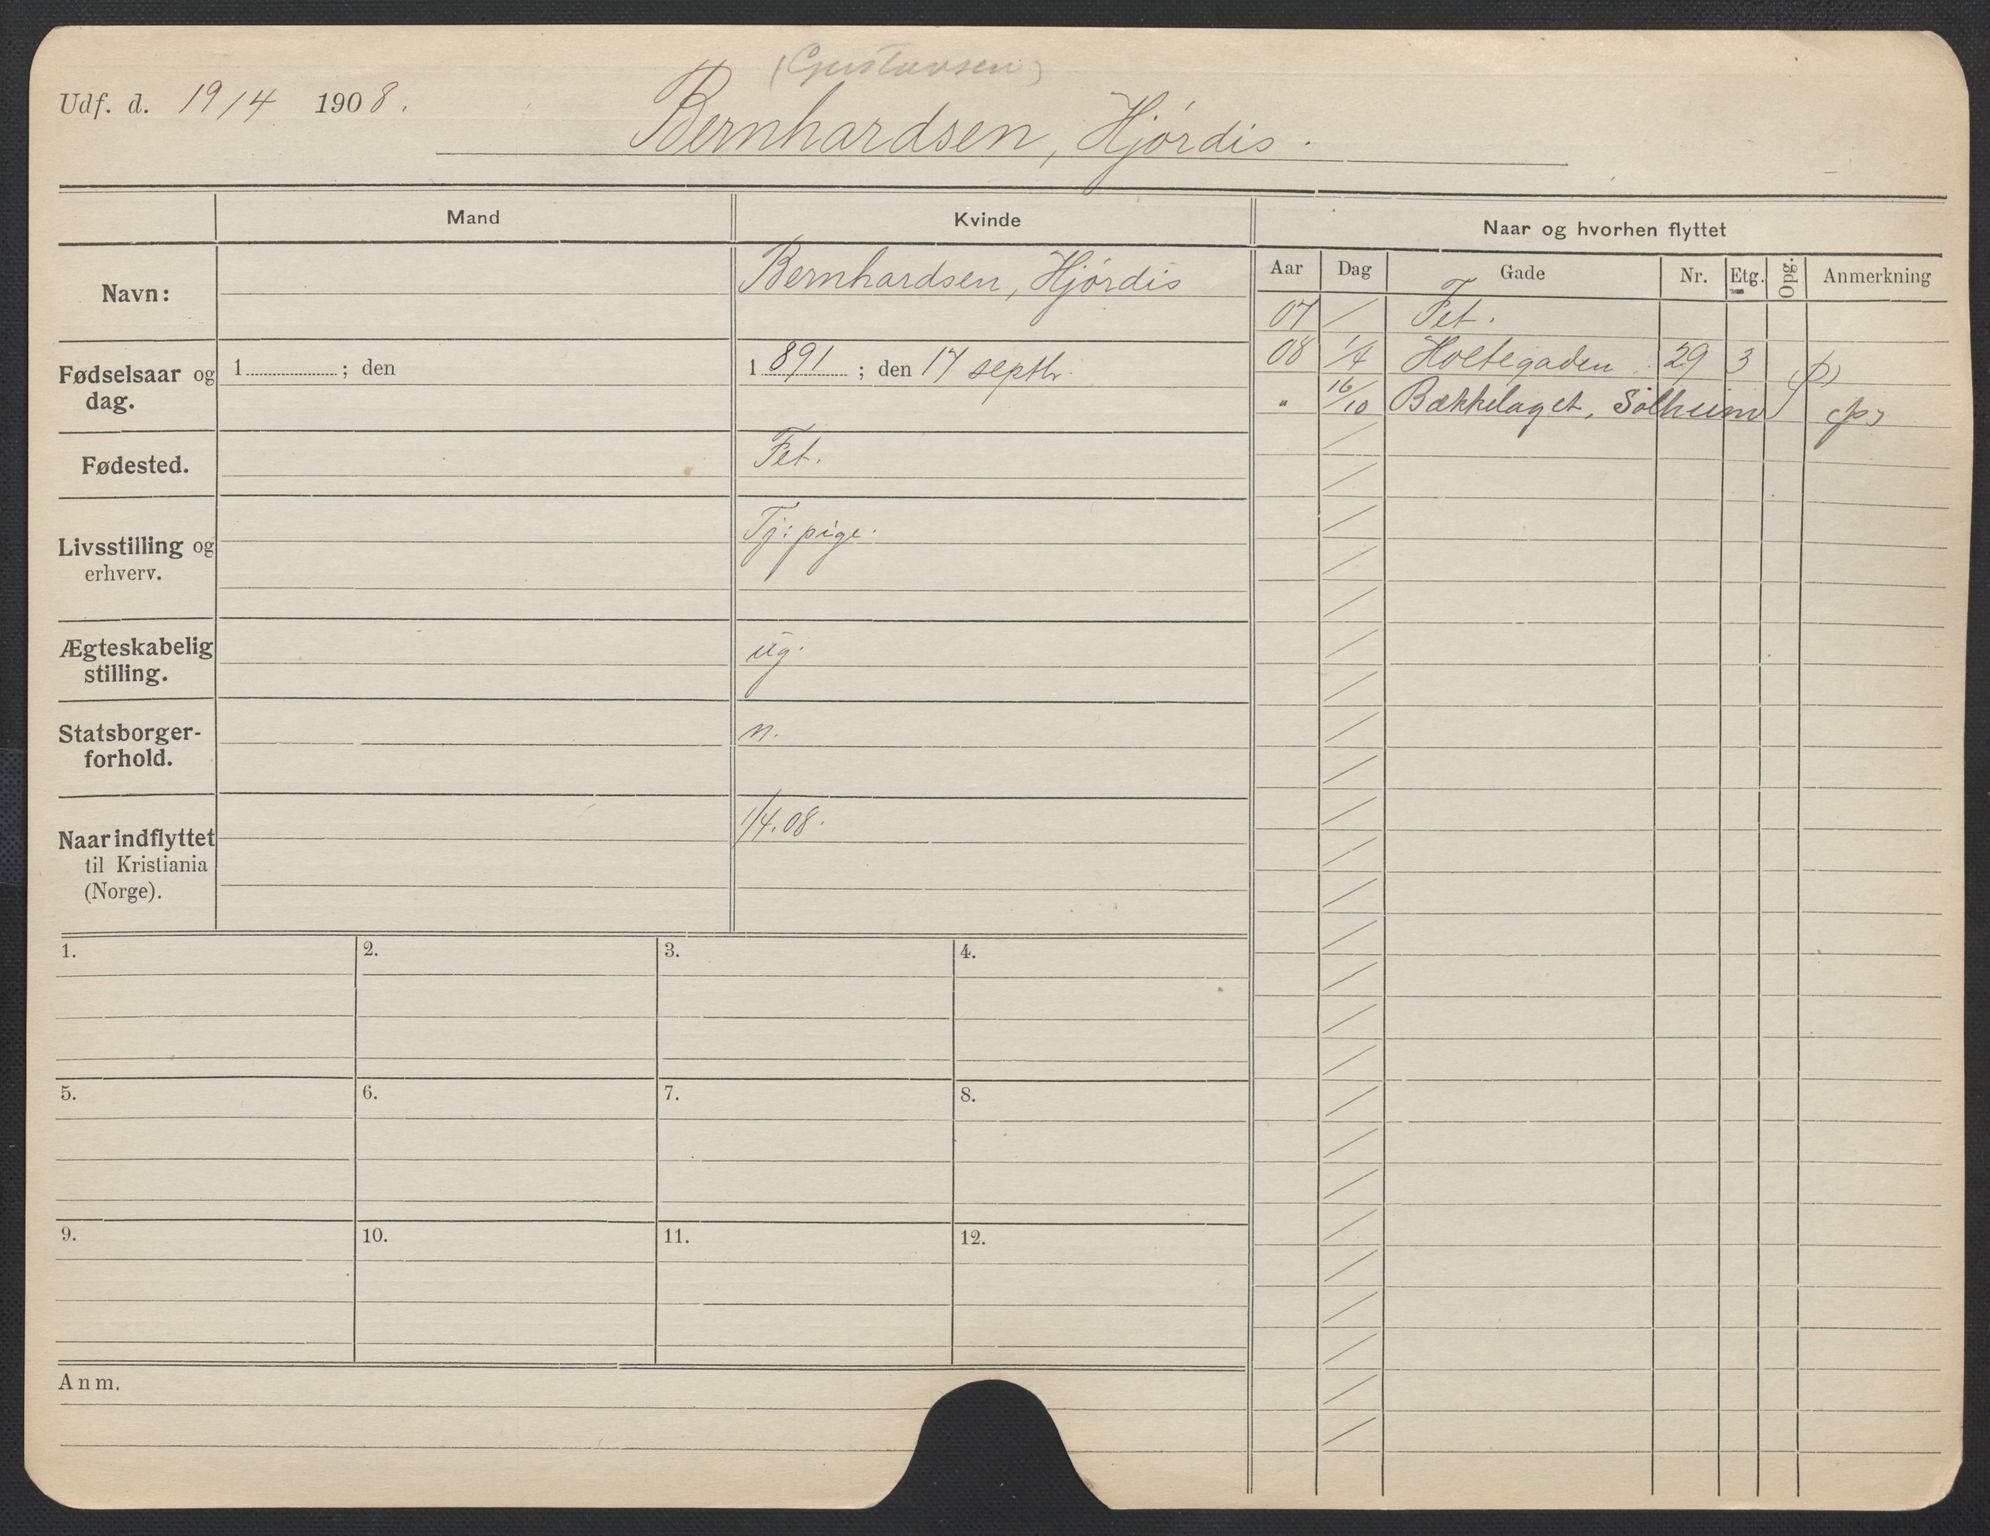 (Gustavsen)
Udf. d. 19/4 1908.
Bernhardsen, Hjørdis.
Mand
Kvinde
Naar og hvorhen flyttet
Aar Dag Gade Nr. Etg. Opg. Anmerkning
Navn:
Bernhardsen, Hjørdis
Fødselsaar og dag.
1 ; den
1891 ; den 17 septbr.
Fødested.
Fet.
Livsstilling og erhverv.
Tj: pige.
Ægteskabelig stilling.
ug.
Statsborger-
forhold.
n.
Naar indflyttet
til Kristiania
(Norge).
1/4.08.
07 / Fet.
08 1/4 Holtegaden 29 3 (p)
" 16/10 Bækkelaget, Solheim (p)
1. 2. 3. 4.
5. 6. 7. 8.
9. 10. 11. 12.
Anm.